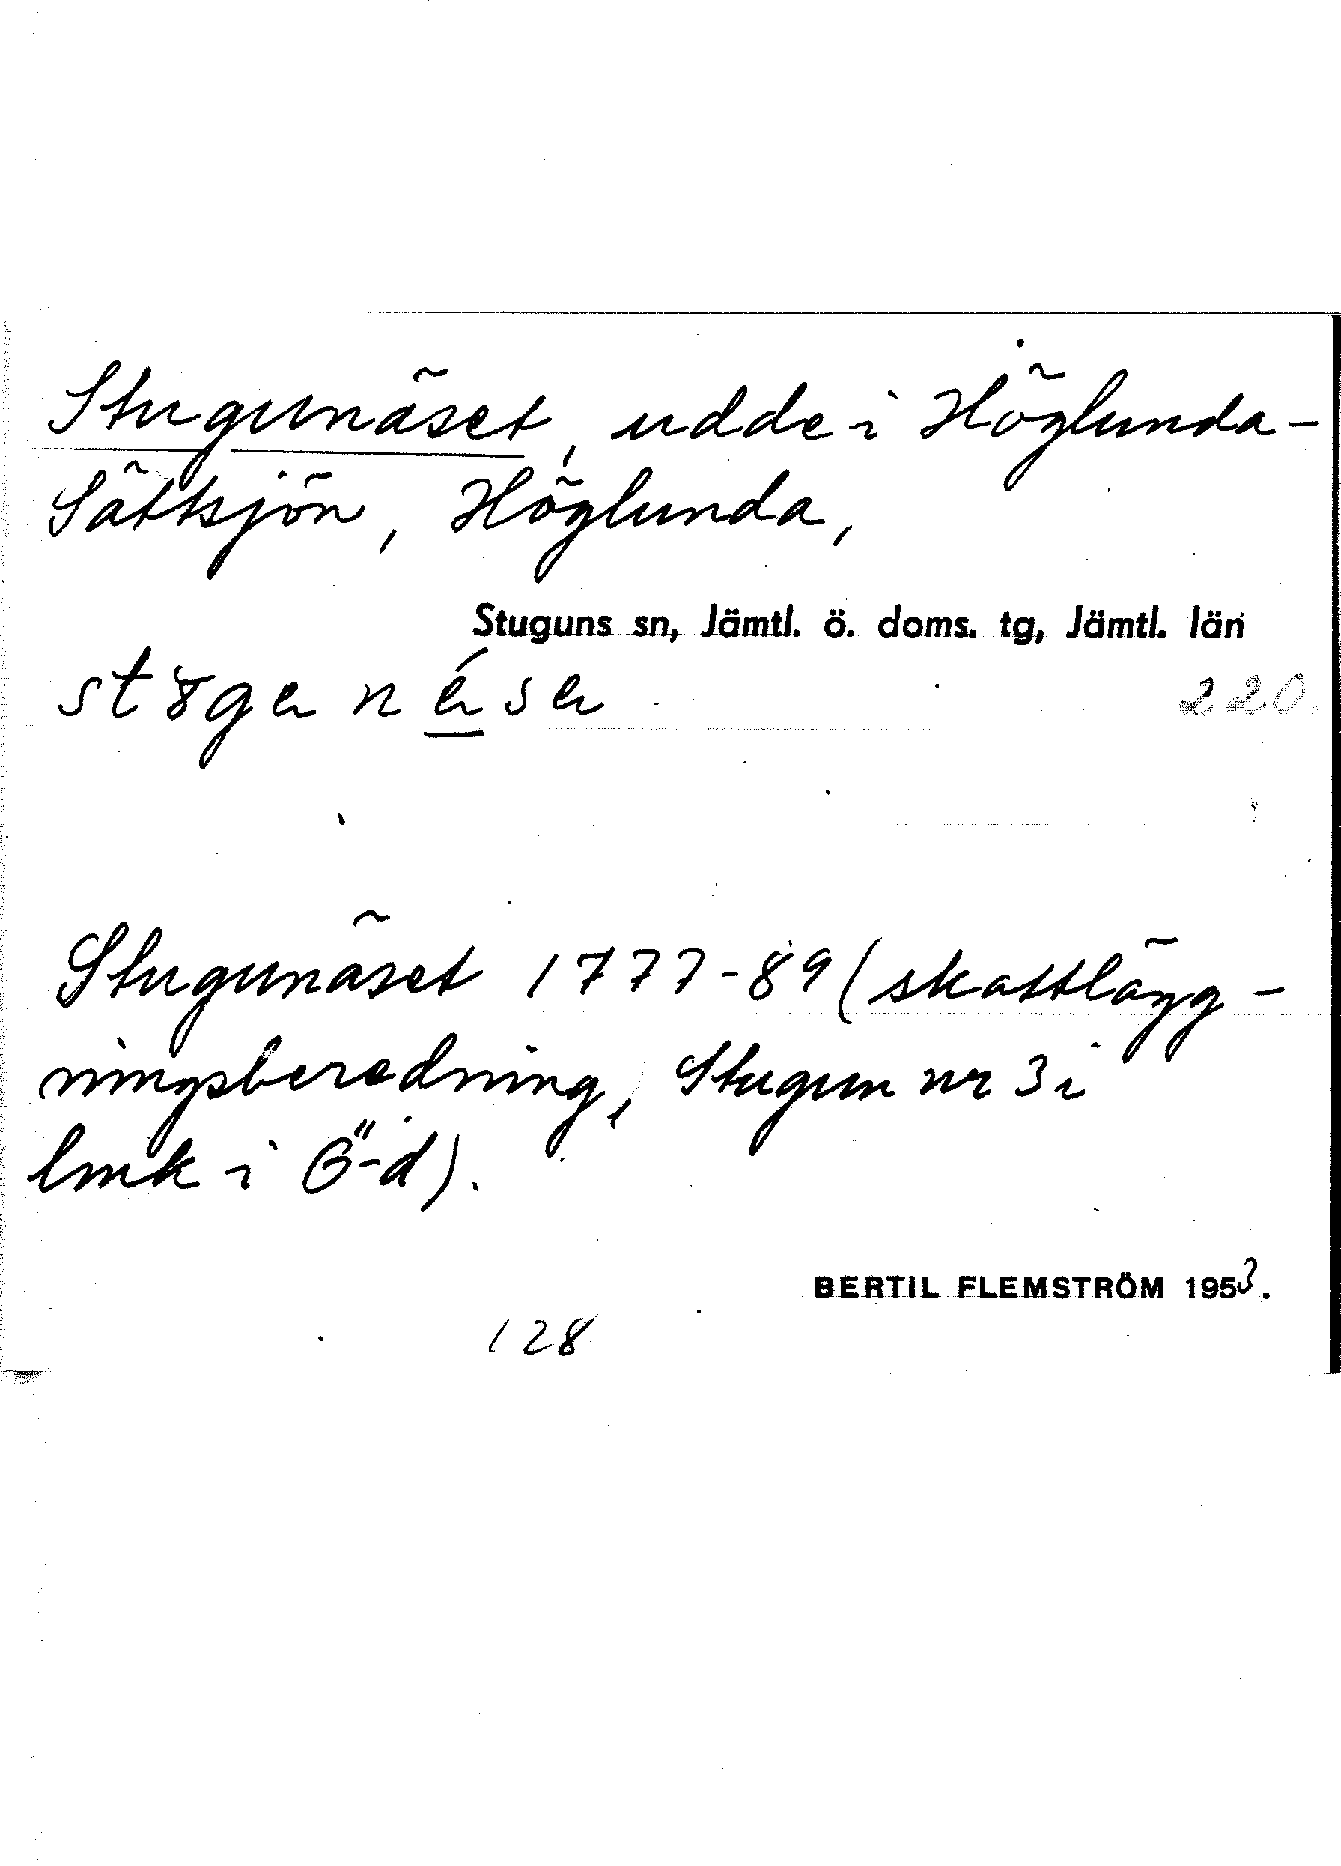 Stugunäset, udde i Höglunda-
Sättsjön, Höglunda,
Stuguns sn, Jämtl. ö. doms. tg, Jämtl. län
220.
Stugunäset 1777-89 (skattlägg-
ningsberedning, Stugun nr 3 i
lmk i Ö-d).
BERTIL FLEMSTRÖM 1953.
128